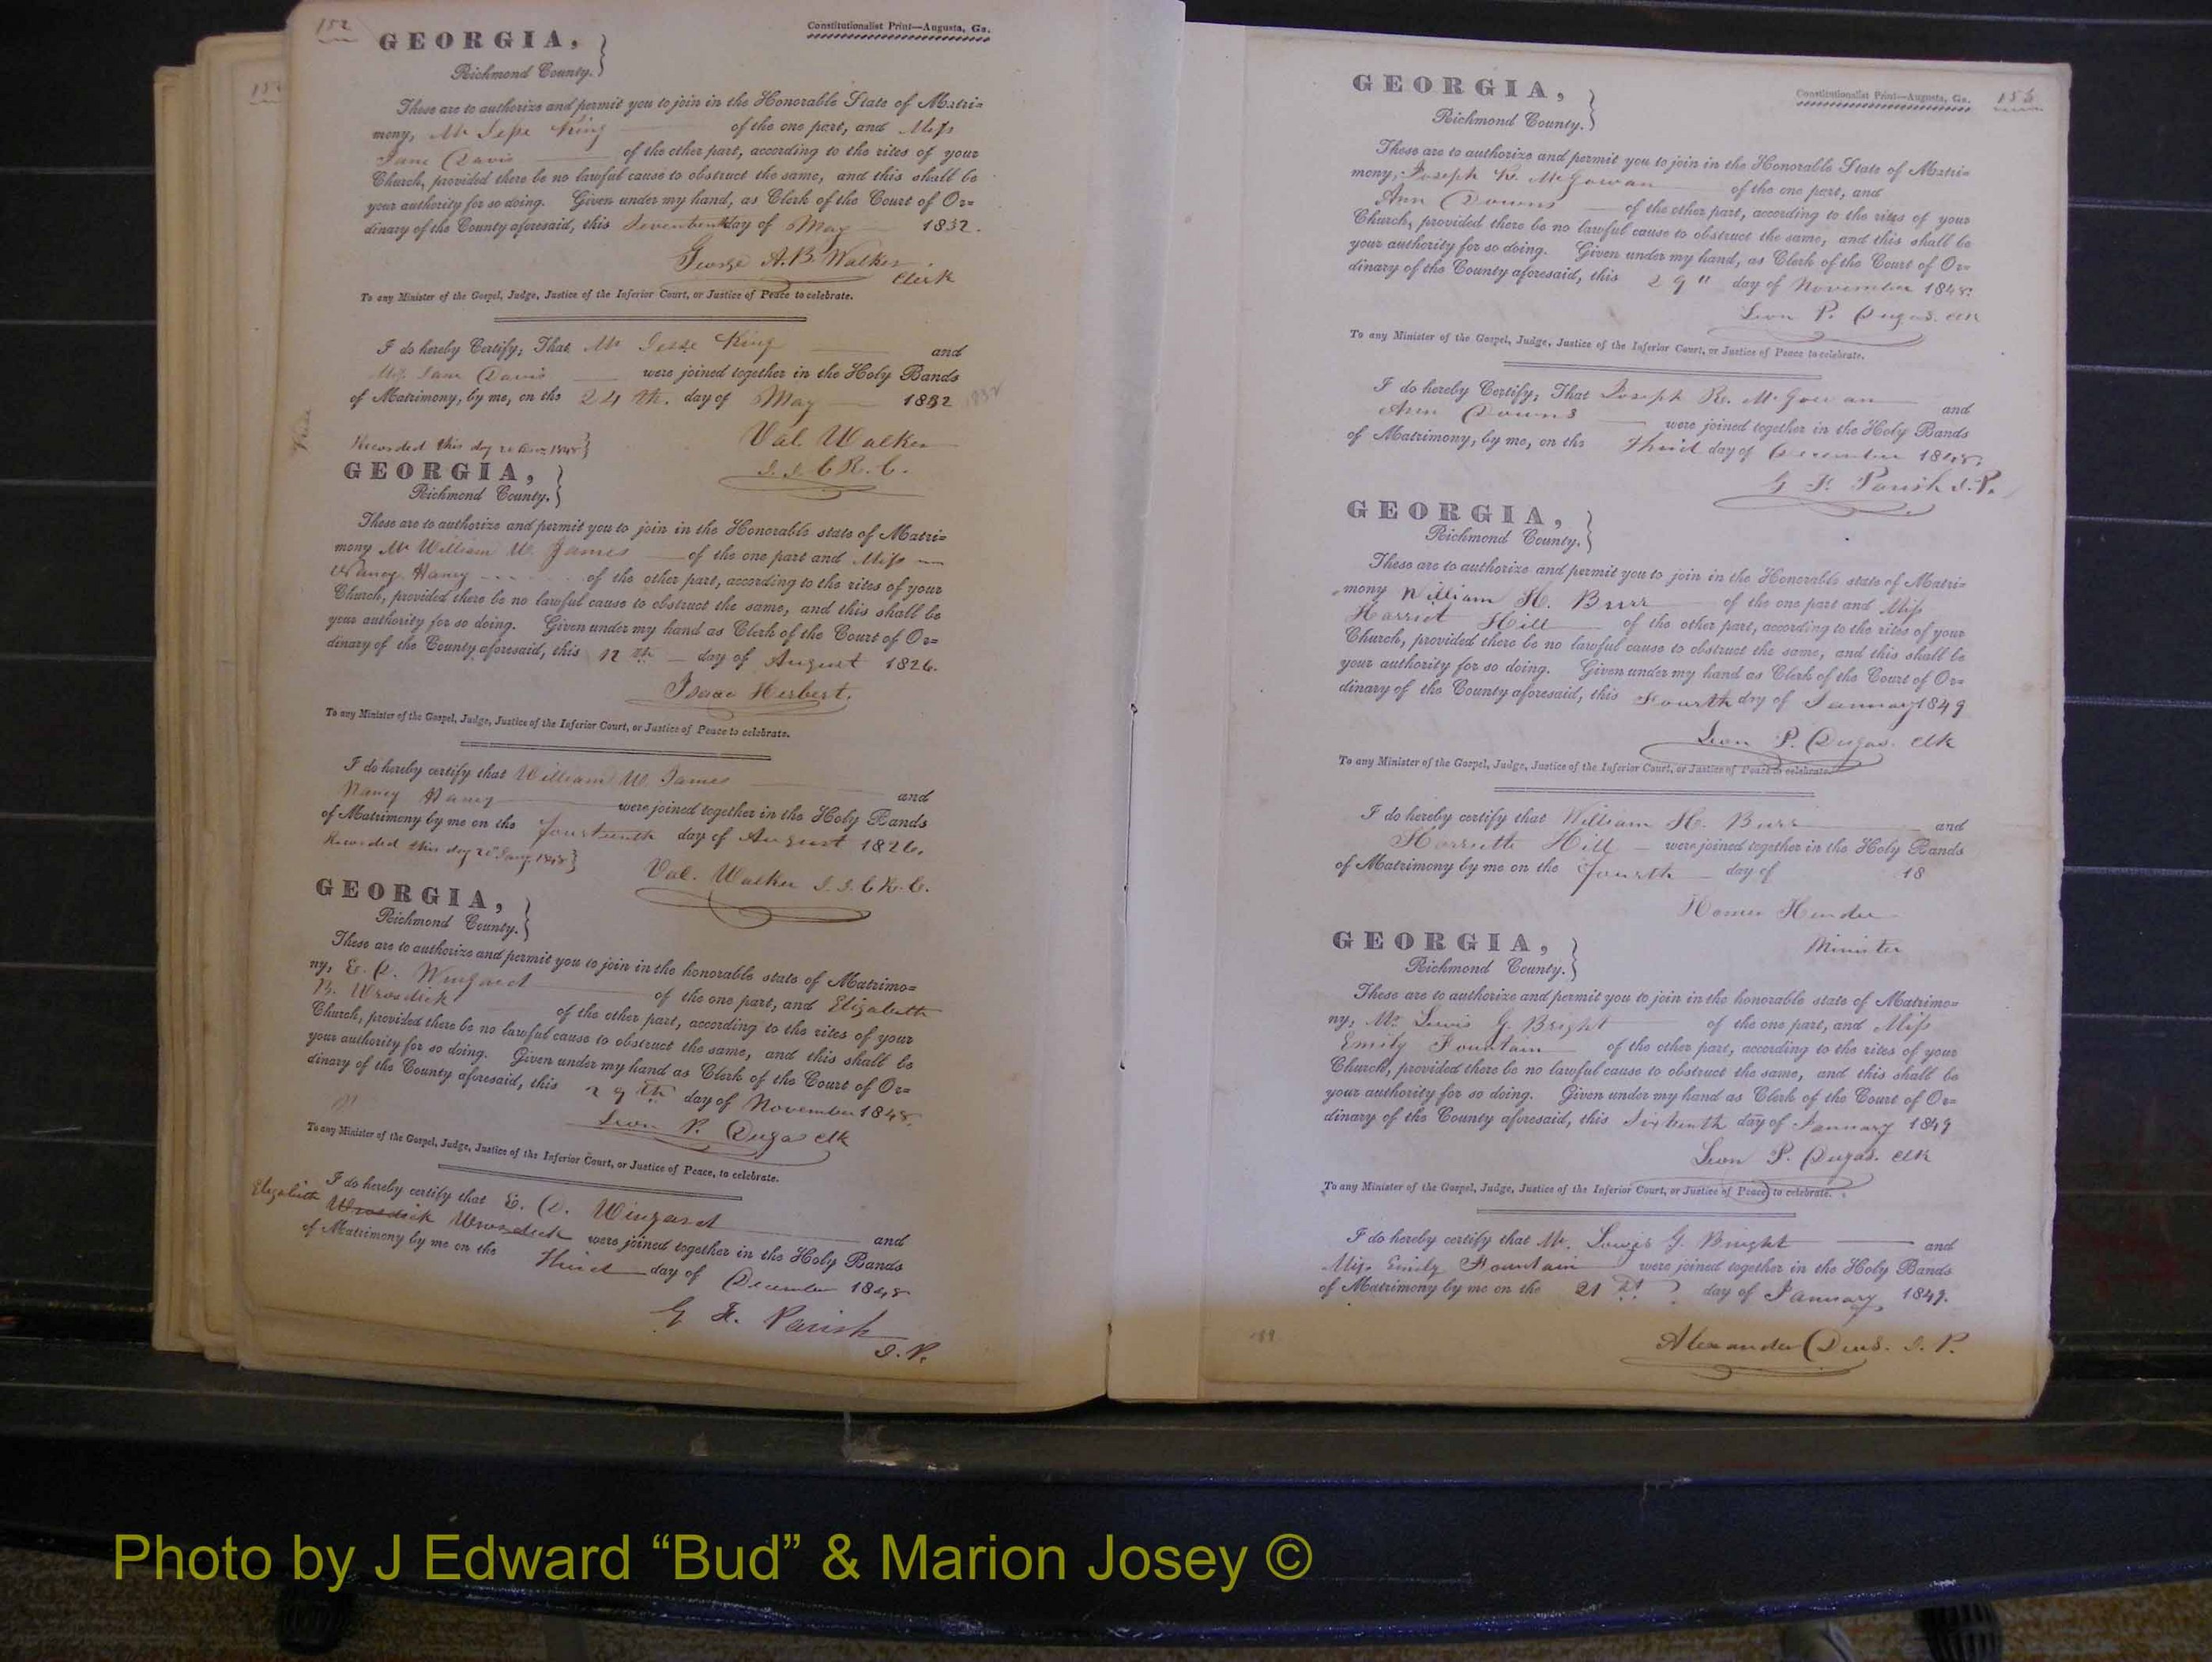 152
Constitutionalist Print—Augusta, Ga.
GEORGIA,
Richmond County.
These are to authorize and permit you to join in the Honorable State of Matri=
mony, Mr Jesse King of the one part, and Miss
Jane Davis of the other part, according to the rites of your
Church, provided there be no lawful cause to obstruct the same, and this shall be
your authority for so doing. Given under my hand, as Clerk of the Court of Or=
dinary of the County aforesaid, this Seventeenth day of May 1832.
George A. B. Walker
Clerk
To any Minister of the Gospel, Judge, Justice of the Inferior Court, or Justice of Peace to celebrate.
I do hereby Certify, That Mr Jesse King and
Miss Jane Davis were joined together in the Holy Bands
of Matrimony, by me, on the 24th. day of May 1832 1832
Recorded this day
Val. Walker
J. I. C. R. C.
GEORGIA,
Richmond County.
These are to authorize and permit you to join in the Honorable state of Matri=
mony Mr William W. James of the one part and Miss
Nancy Haney of the other part, according to the rites of your
Church, provided there be no lawful cause to obstruct the same, and this shall be
your authority for so doing. Given under my hand as Clerk of the Court of Or=
dinary of the County aforesaid, this 12th day of August 1826.
Isaac Herbert.
To any Minister of the Gospel, Judge, Justice of the Inferior Court, or Justice of Peace to celebrate.
I do hereby certify that William W. James and
Nancy Haney were joined together in the Holy Bands
of Matrimony by me on the fourteenth day of August 1826.
Recorded this day
Val. Walker J. I. C. R. C.
GEORGIA,
Richmond County.
These are to authorize and permit you to join in the honorable state of Matrimo=
ny, E. D. Wingard of the one part, and Elizabeth
B. of the other part, according to the rites of your
Church, provided there be no lawful cause to obstruct the same, and this shall be
your authority for so doing. Given under my hand as Clerk of the Court of Or=
dinary of the County aforesaid, this 29th day of November 1848.
Leon P. Dugas Clk
To any Minister of the Gospel, Judge, Justice of the Inferior Court, or Justice of Peace, to celebrate.
I do hereby certify that E. D. Wingard and
Elizabeth were joined together in the Holy Bands
of Matrimony by me on the Third day of December 1848
G F. Parish
J. P.
Constitutionalist Print—Augusta, Ga.
GEORGIA,
Richmond County.
These are to authorize and permit you to join in the Honorable State of Matri=
mony, Joseph R. McGowan of the one part, and
Ann Downs of the other part, according to the rites of your
Church, provided there be no lawful cause to obstruct the same, and this shall be
your authority for so doing. Given under my hand, as Clerk of the Court of Or=
dinary of the County aforesaid, this 29" day of November 1848.
Leon P. Dugas. Clk
To any Minister of the Gospel, Judge, Justice of the Inferior Court, or Justice of Peace to celebrate.
I do hereby Certify, That Joseph R. McGowan and
Ann Downs were joined together in the Holy Bands
of Matrimony, by me, on the Third day of December 1848.
G F. Parish J. P.
GEORGIA,
Richmond County.
These are to authorize and permit you to join in the Honorable state of Matri=
mony William H. Burr of the one part and Miss
Harriet Hill of the other part, according to the rites of your
Church, provided there be no lawful cause to obstruct the same, and this shall be
your authority for so doing. Given under my hand as Clerk of the Court of Or=
dinary of the County aforesaid, this Fourth day of January 1849
Leon P. Dugas. Clk
To any Minister of the Gospel, Judge, Justice of the Inferior Court, or Justice of Peace to celebrate.
I do hereby certify that William H. Burr and
Harriette Hill were joined together in the Holy Bands
of Matrimony by me on the fourth day of 18
Homer Hendee
Minister
GEORGIA,
Richmond County.
These are to authorize and permit you to join in the honorable state of Matrimo=
ny, Mr. Lewis G. Bright of the one part, and Miss
Emily Fountain of the other part, according to the rites of your
Church, provided there be no lawful cause to obstruct the same, and this shall be
your authority for so doing. Given under my hand as Clerk of the Court of Or=
dinary of the County aforesaid, this Sixteenth day of January 1849
Leon P. Dugas. Clk
To any Minister of the Gospel, Judge, Justice of the Inferior Court, or Justice of Peace, to celebrate.
I do hereby certify that Mr. Lewis G. Bright and
Miss Emily Fountain were joined together in the Holy Bands
of Matrimony by me on the 21st day of January, 1849.
Alexander Deas. J. P.
Photo by J Edward “Bud” & Marion Josey ©